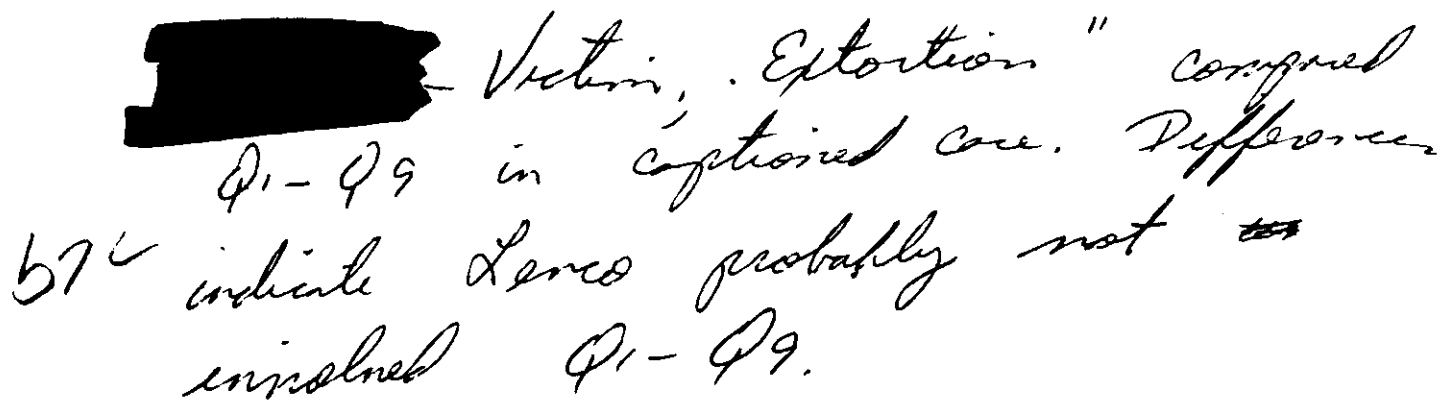 - Victim, . Extortion" compared
Q1 - Q9 in captioned case. Differences
b7C indicate Lenco probably not
involved Q1 - Q9.